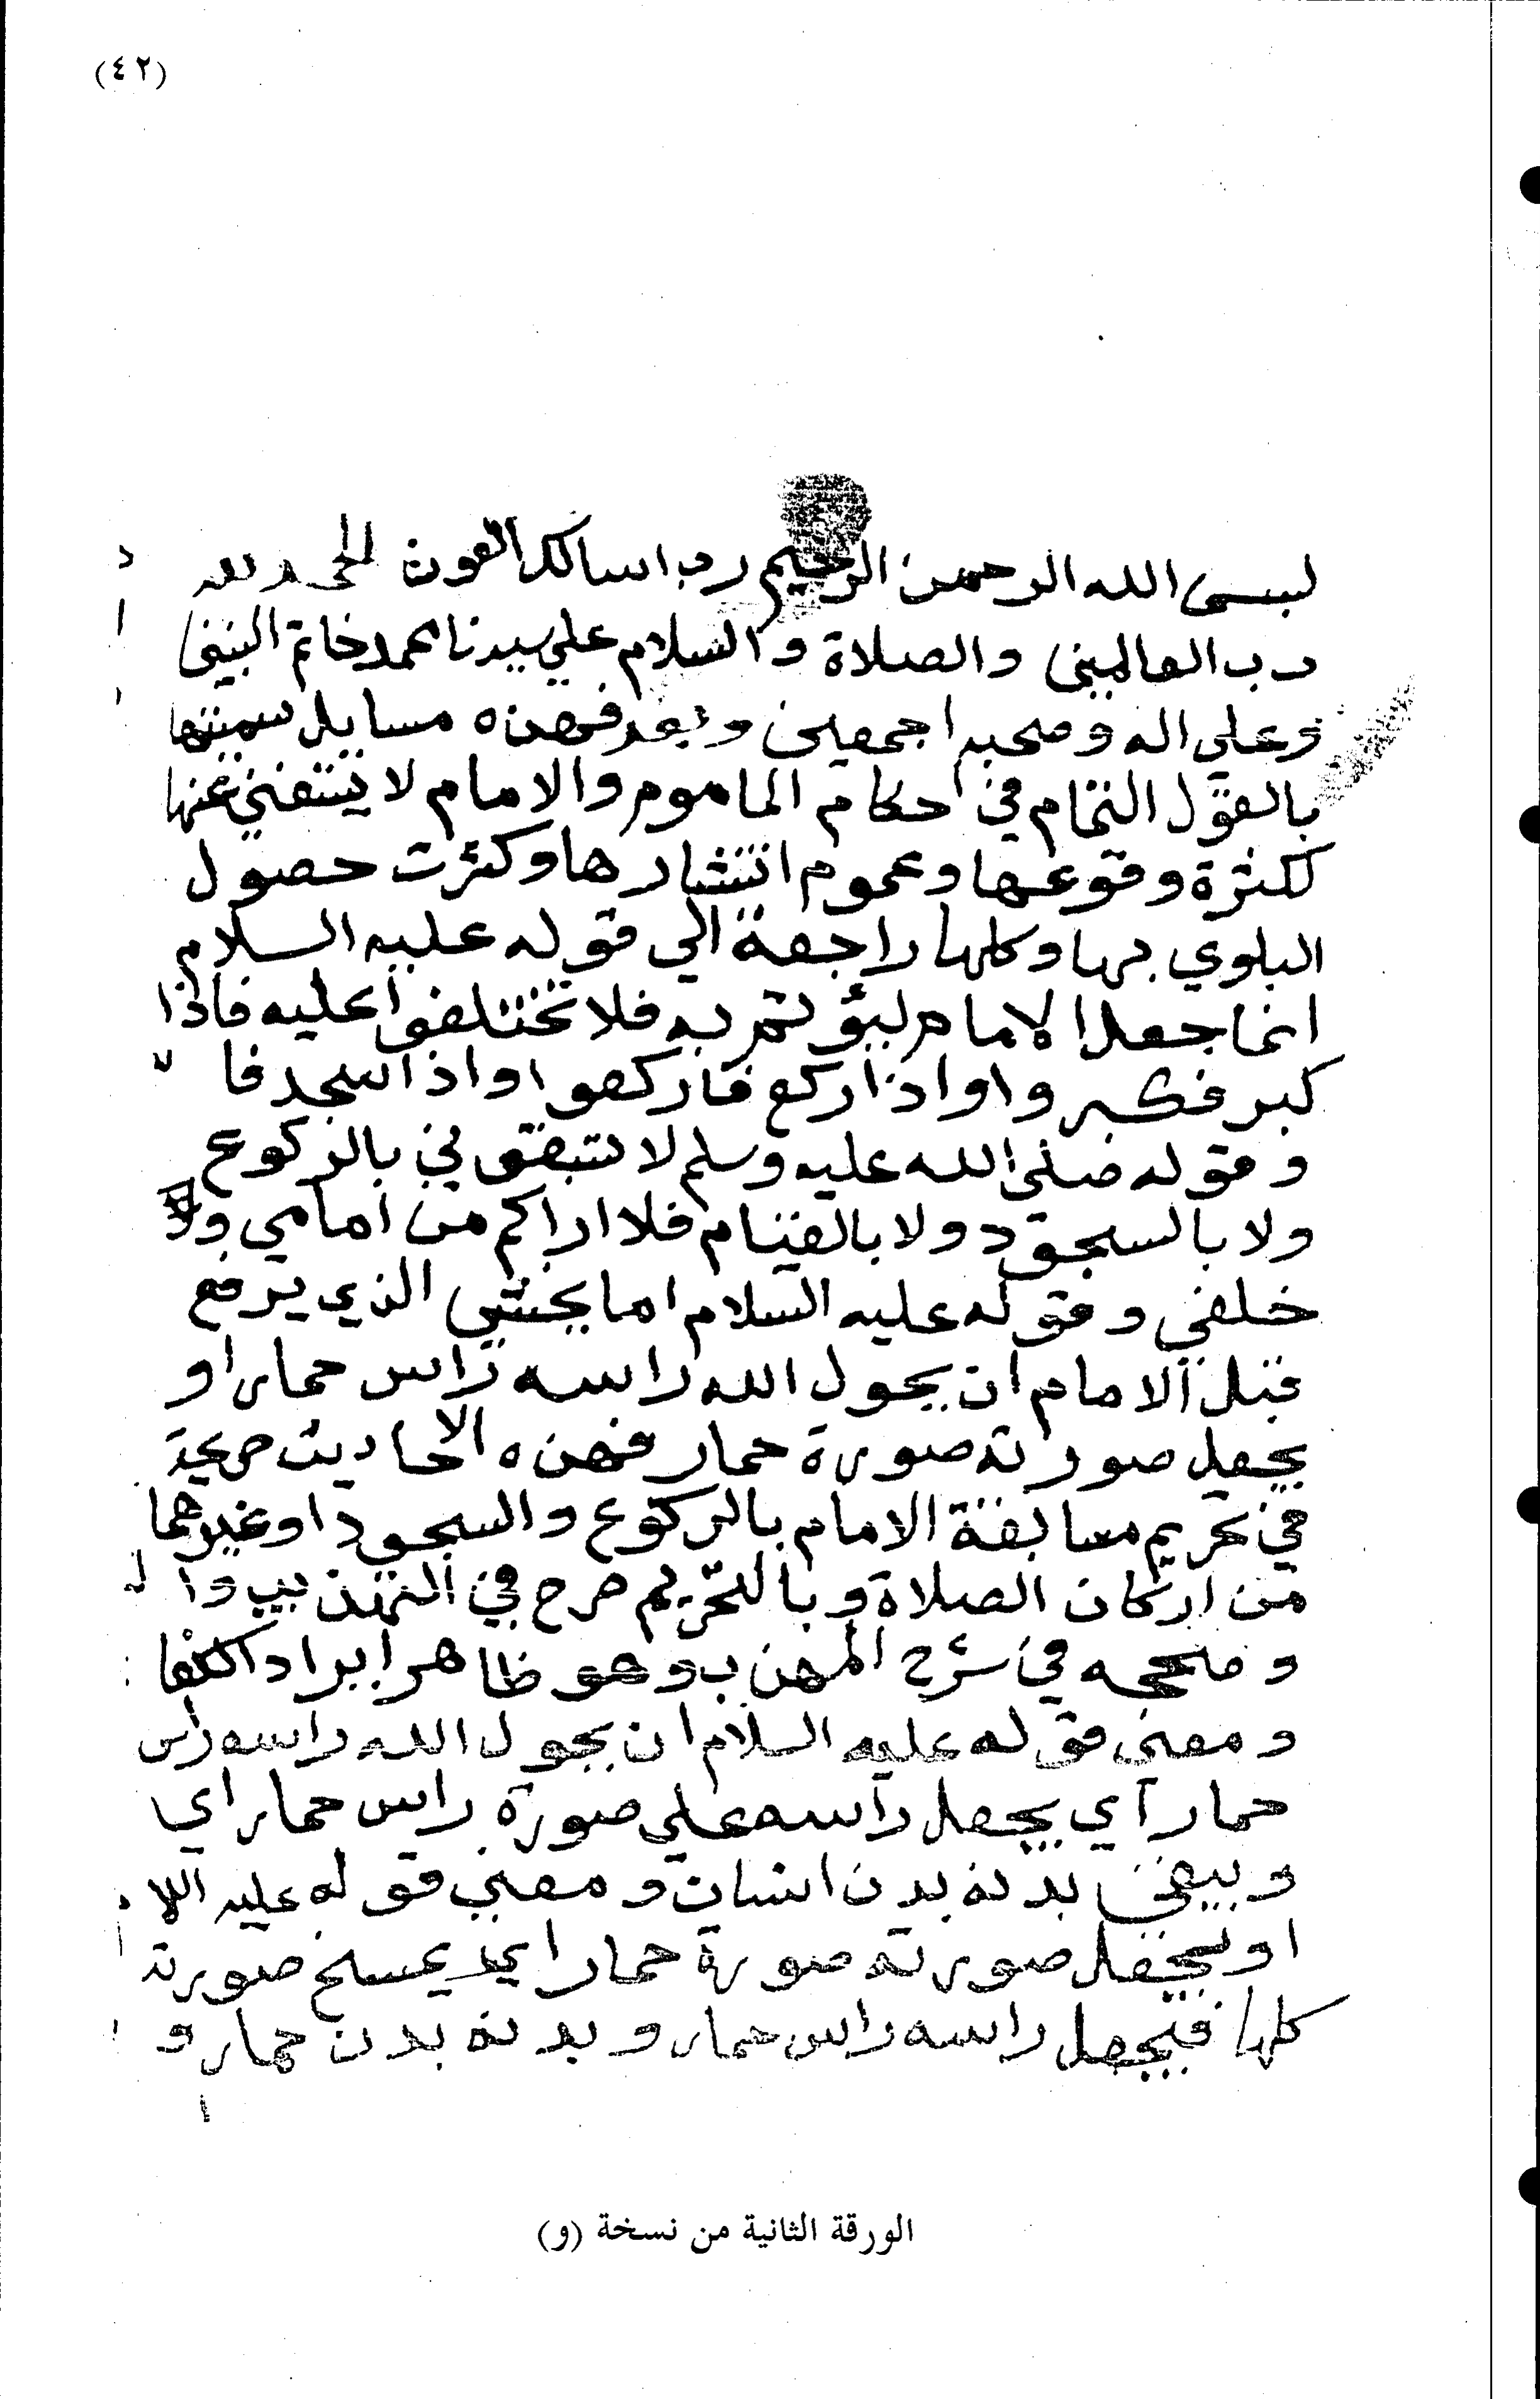 (٤٢)
بسم الله الرحمن الرحيم رب اسالك العون الحمد لله
رب العالمين والصلاة والسلام علي سيدنا محمد خاتم النبين
وعلي اله وصحبه اجمعين وبعد فهذه مسايل سميتها
بالقول التمام في احكام الماموم والامام لا يستغني عنها
لكثرة وقوعها وعموم انتشارها وكثرت حصول
البلوي بها وكلها راجعة الي قوله عليه السلام
انما جعل الامام ليؤتم به فلا تختلفوا عليه فاذا
كبر فكبروا واذا ركع فاركعوا واذا سجد فا
وقوله صلي الله عليه وسلم لا تسبقوني بالركوع
ولا بالسجود ولا بالقيام فلا اراكم من امامي ولا
خلفي وقوله عليه السلام اما يخشي الذي يرفع
قبل الامام ان يحول الله راسه راس حمار او
يجعل صورته صورة حمار فهذه الاحاديث صريحة
في تحريم مسابقة الامام بالركوع والسجود او غيرهما
من اركان الصلاة وبالتحريم صرح في التهذيب وا
وصححه في شرح المهذب وهو ظاهر ايراد الكفا
ومعني قوله عليه السلام ان يحول الله راسه راس
حمار اي يجعل راسه علي صورة راس حمار اي
ويبقي بدنه بدن انسان ومعني قوله عليه اللا
او يجعل صورته صورة حمار اي يمسخ صورته
كلها فيجعل راسه راس حمار وبدنه بدن حمار و
الورقة الثانية من نسخة (و)